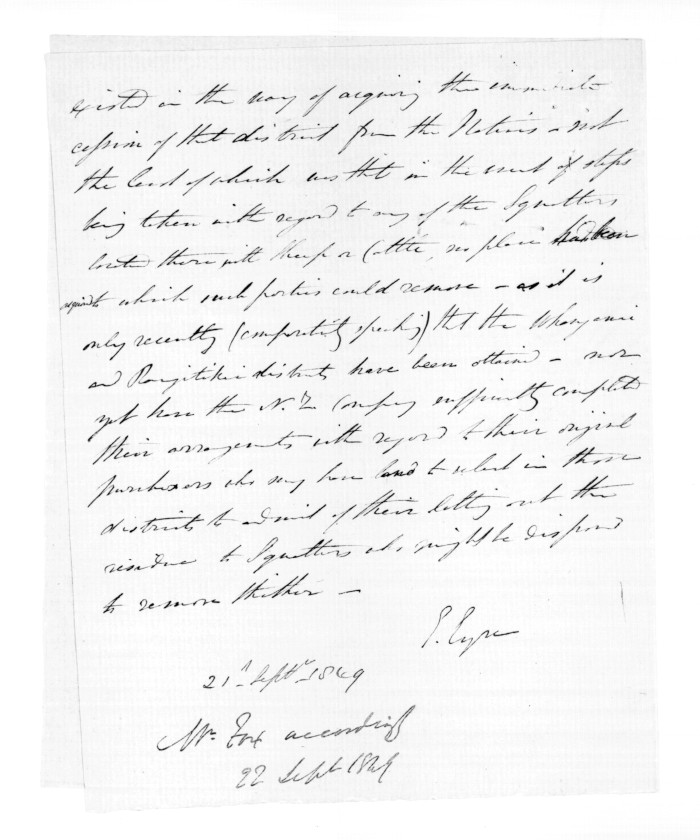 existed in the way of acquiring the immediate
cession of that district from the Natives - not
the least of which was that in the event of steps
being taken with regard to any of the Squatters
located there with sheep or Cattle, no place had been
acquired to which such parties could remove - as it is
only recently (comparatively speaking) that the Whanganui
and Rangitikei districts have been obtained - nor
yet have the N.Z. Company sufficiently completed
their arrangements with regard to their original
purchasers who may have land to select in those
districts to admit of their letting out the
residue to Squatters who might be disposed
to remove thither -
E. Eyre
21st Septr 1849
Mr. Fox accordingly
22 Sept 1849